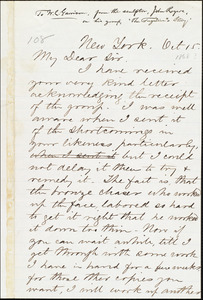 To W. L. Garrison, from the sculptor John Rogers,
in his group "The Fugitive's Story."
108
New York. Oct 15.
My Dear Sir
I have received
your very kind letter
acknowledging the receipt
of the group. I was well
aware when I sent it
of the shortcomings in
your likeness, particularly,
when I sent it but I could
not delay it then to try &
remedy it. The fact is that
the bronze chaser who works
up the face labored so hard
to get it right that he worked
it down too thin. Now if
you can wait awhile till I
get through with some work
I have in hand for a few weeks
for those other copies you
want, I will work up another